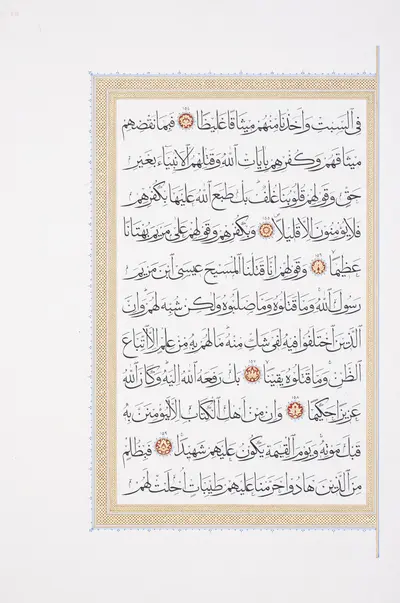 فى السبت واخذنا منهم ميثاقا غليظا ١٥٤ فبما نقضهم
ميثاقهم وكفرهم بايات الله وقتلهم الانبياء بغير
حق وقولهم قلوبنا غلف بل طبع الله عليها بكفرهم
فلا يؤمنون الا قليلا ١٥٥ وبكفرهم وقولهم على مريم بهتانا
عظيما ١٥٦ وقولهم انا قتلنا المسيح عيسى ابن مريم
رسول الله وما قتلوه وما صلبوه ولكن شبه لهم وان
الذين اختلفوا فيه لفى شك منه ما لهم به من علم الا اتباع
الظن وما قتلوه يقينا ١٥٧ بل رفعه الله اليه وكان الله
عزيزا حكيما ١٥٨ وان من اهل الكتاب الا ليؤمنن به
قبل موته ويوم القيمة يكون عليهم شهيدا ١٥٩ فبظلم
من الذين هادوا حرمنا عليهم طيبات احلت لهم